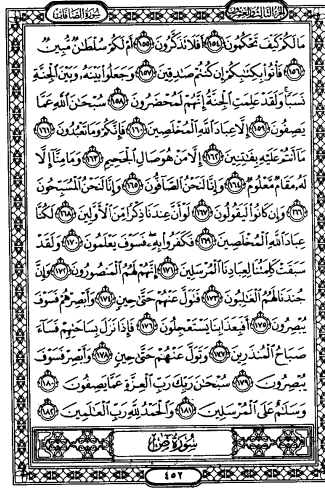 سُورَةُ الصَّافَّاتِ الجُزْءُ الثَّالِثُ وَالعِشْرُونَ
مَا لَكُمْ كَيْفَ تَحْكُمُونَ ١٥٤ أَفَلَا تَذَكَّرُونَ ١٥٥ أَمْ لَكُمْ سُلْطَانٌ مُّبِينٌ
١٥٦ فَأْتُوا بِكِتَابِكُمْ إِن كُنتُمْ صَادِقِينَ ١٥٧ وَجَعَلُوا بَيْنَهُ وَبَيْنَ الْجِنَّةِ
نَسَبًا وَلَقَدْ عَلِمَتِ الْجِنَّةُ إِنَّهُمْ لَمُحْضَرُونَ ١٥٨ سُبْحَانَ اللَّهِ عَمَّا
يَصِفُونَ ١٥٩ إِلَّا عِبَادَ اللَّهِ الْمُخْلَصِينَ ١٦٠ فَإِنَّكُمْ وَمَا تَعْبُدُونَ ١٦١
مَا أَنتُمْ عَلَيْهِ بِفَاتِنِينَ ١٦٢ إِلَّا مَنْ هُوَ صَالِ الْجَحِيمِ ١٦٣ وَمَا مِنَّا إِلَّا
لَهُ مَقَامٌ مَّعْلُومٌ ١٦٤ وَإِنَّا لَنَحْنُ الصَّافُّونَ ١٦٥ وَإِنَّا لَنَحْنُ الْمُسَبِّحُونَ
١٦٦ وَإِن كَانُوا لَيَقُولُونَ ١٦٧ لَوْ أَنَّ عِندَنَا ذِكْرًا مِّنَ الْأَوَّلِينَ ١٦٨ لَكُنَّا
عِبَادَ اللَّهِ الْمُخْلَصِينَ ١٦٩ فَكَفَرُوا بِهِ فَسَوْفَ يَعْلَمُونَ ١٧٠ وَلَقَدْ
سَبَقَتْ كَلِمَتُنَا لِعِبَادِنَا الْمُرْسَلِينَ ١٧١ إِنَّهُمْ لَهُمُ الْمَنصُورُونَ ١٧٢ وَإِنَّ
جُندَنَا لَهُمُ الْغَالِبُونَ ١٧٣ فَتَوَلَّ عَنْهُمْ حَتَّىٰ حِينٍ ١٧٤ وَأَبْصِرْهُمْ فَسَوْفَ
يُبْصِرُونَ ١٧٥ أَفَبِعَذَابِنَا يَسْتَعْجِلُونَ ١٧٦ فَإِذَا نَزَلَ بِسَاحَتِهِمْ فَسَاءَ
صَبَاحُ الْمُنذَرِينَ ١٧٧ وَتَوَلَّ عَنْهُمْ حَتَّىٰ حِينٍ ١٧٨ وَأَبْصِرْ فَسَوْفَ
يُبْصِرُونَ ١٧٩ سُبْحَانَ رَبِّكَ رَبِّ الْعِزَّةِ عَمَّا يَصِفُونَ ١٨٠
وَسَلَامٌ عَلَى الْمُرْسَلِينَ ١٨١ وَالْحَمْدُ لِلَّهِ رَبِّ الْعَالَمِينَ ١٨٢
سُورَةُ ص
٤٥٢